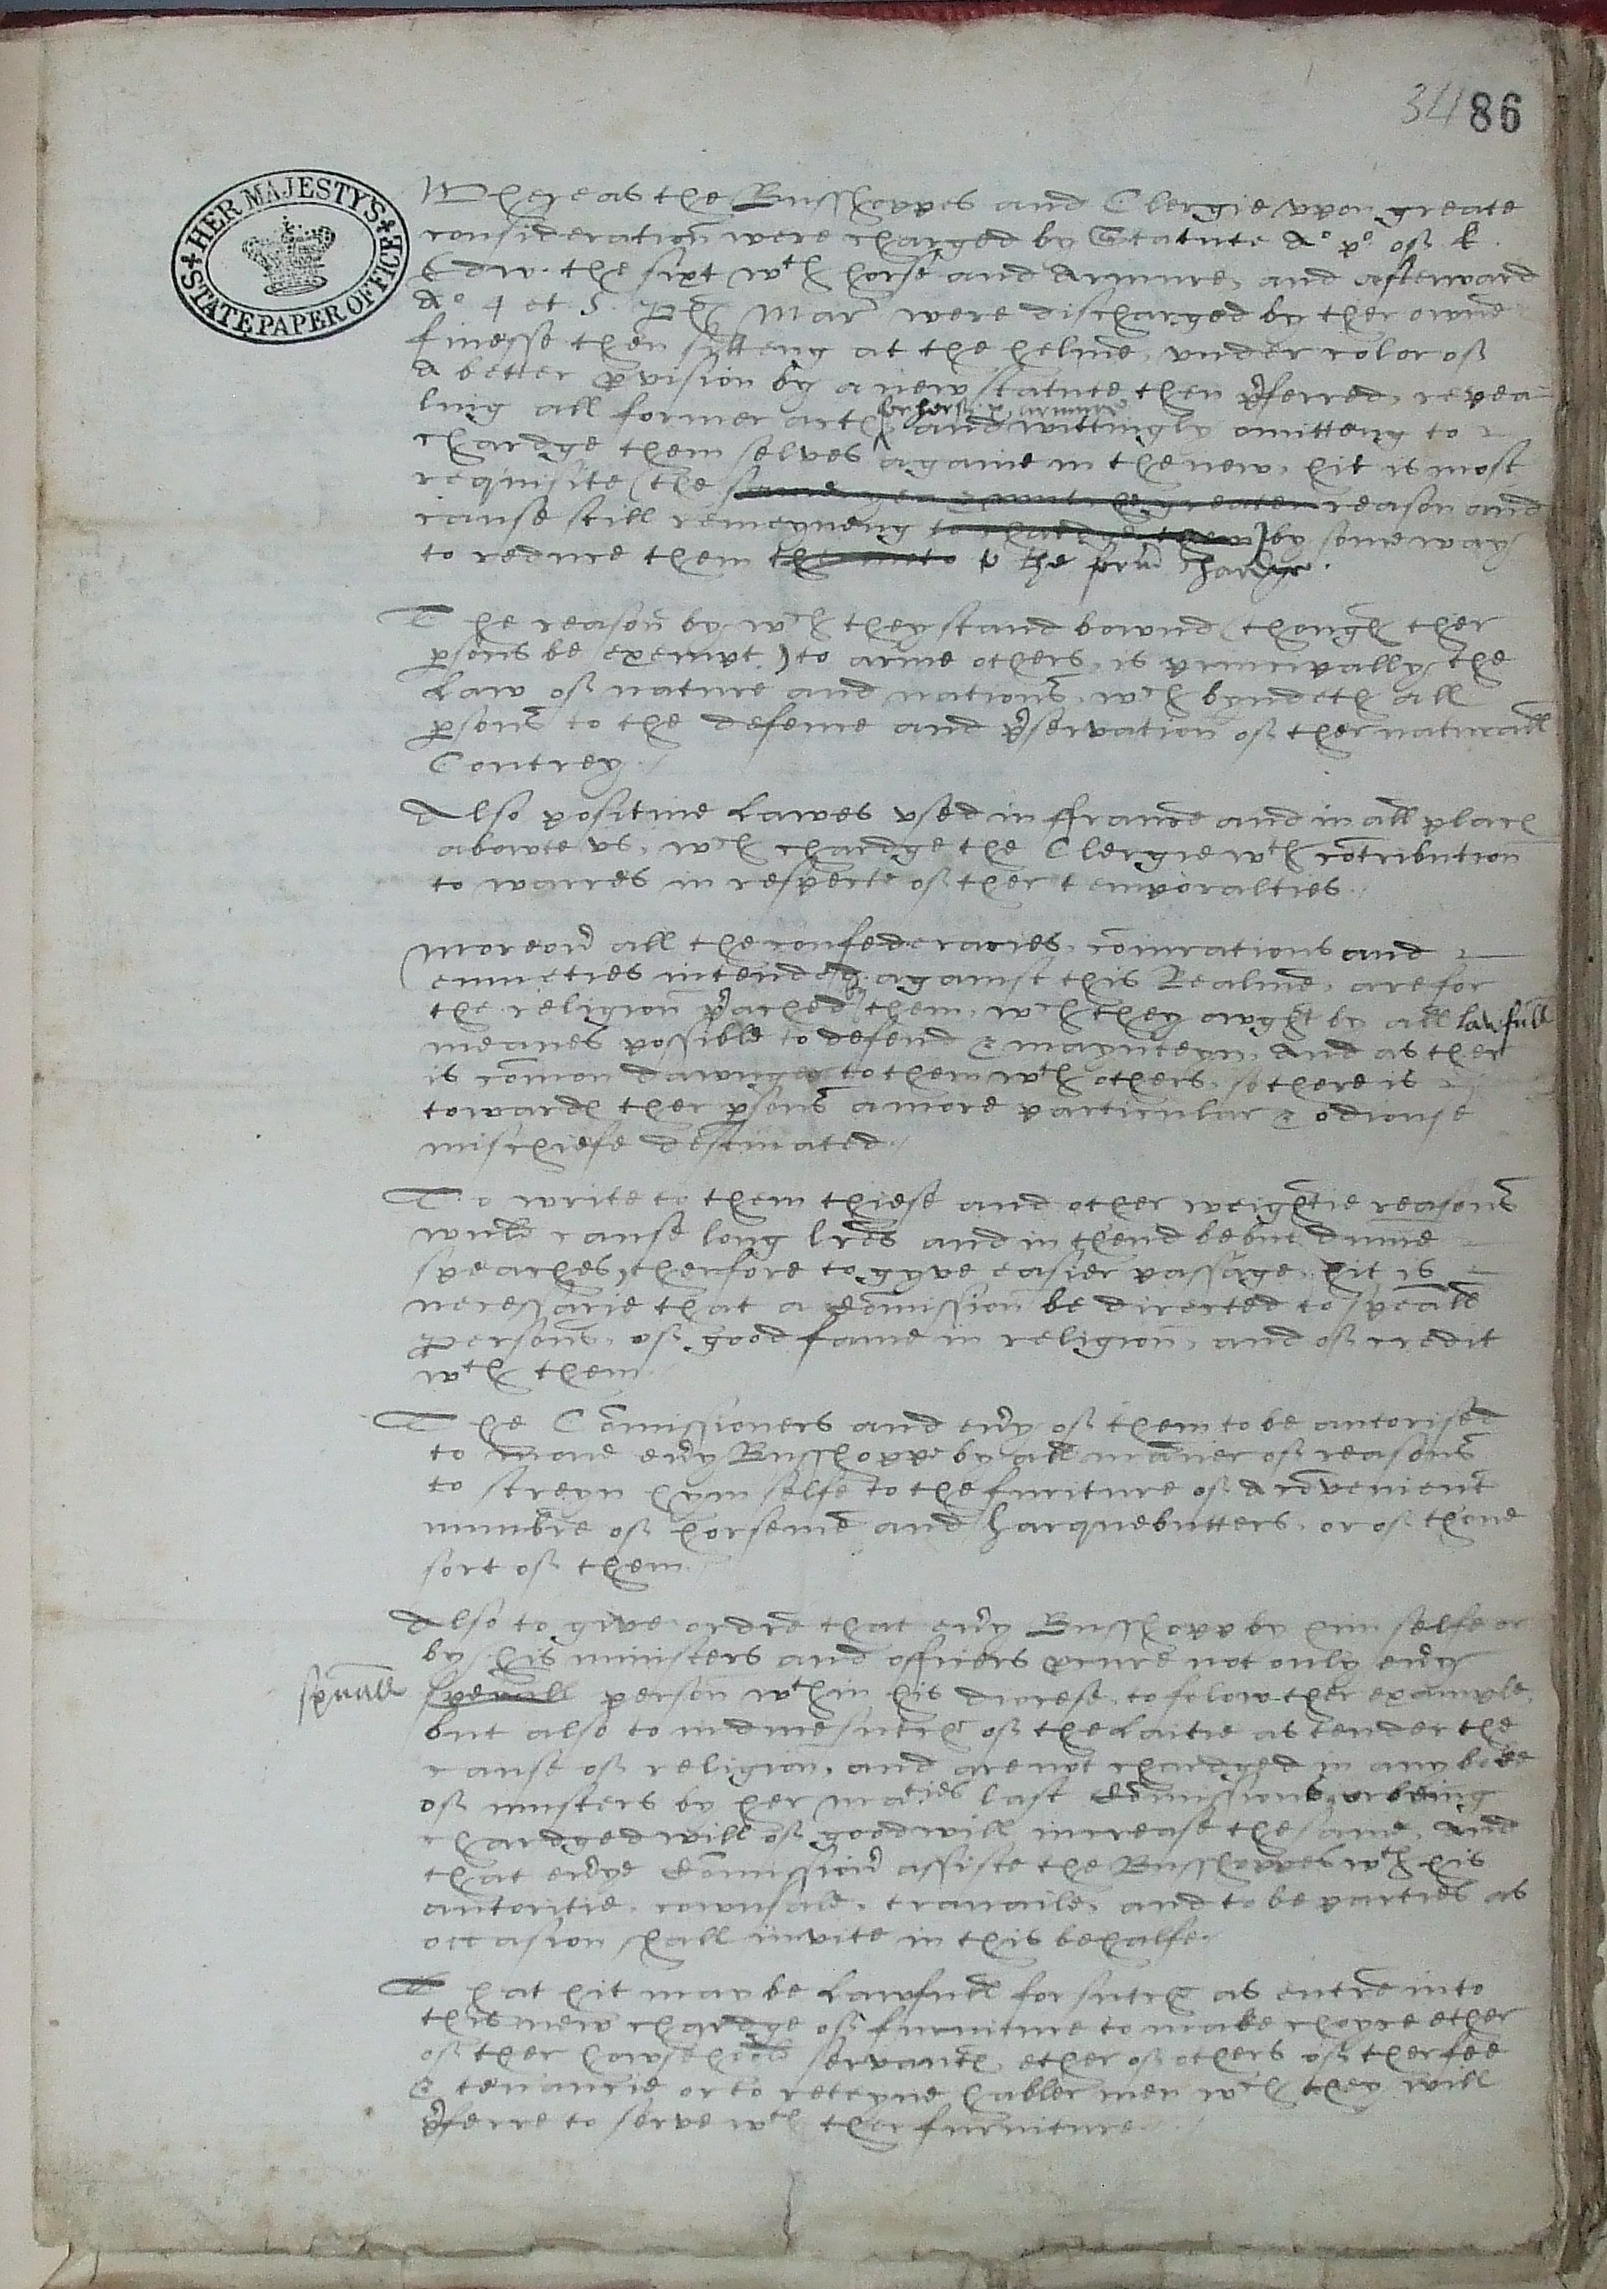 34 86
HER MAJESTY'S STATE PAPER OFFICE
Whereas the Busshoppes and Clergie vpon greate
consideration were charged by Statute Ao po of K.
Edw. the sixt wth horse and Armure, and afterward
Ao 4 et 5 Ph Mar were discharged by ther owne
finesse then sytteng at the helme, vnder color of
a better pvision by a new statute then pferred, repea-
ling all former act for horse & armure and wittingly omitteng to
chardge them selves againe in the new, hit is most
requisite (the same reason and
cause still remeyneng to chardge them) by some way
to reduce them therunto to the form chardge.
The reason by wch they stand bownd (though ther
psons be exempt) to arme others, is principally the
Law of nature and nations, wch byndeth all
psons to the defence and pservation of ther naturall
Contrey.
Also positive Lawes vsed in ffraunce and in all places
abowte vs, wch chardge the Clergie wth cotribution
to warres in respecte of ther temporalties.
Moreour all the confederacies, coniurations and
enmeties intended against this Realme, are for
the religion preached by them, wch they owght by all lawfull
meanes possible to defend & maynteyn. And as ther
is comon dawnger to them wth others, so there is
towards ther psons a more particular & odiouse
mischiefe destinated.
To write to them thiese and other weightie reasons
wuld cause long lres and in thend be but dume
speaches, therfore to gyve easier passage, hit is
necessarie that a Comission be directed to speciall
persons, of good fame in religion, and of credit
wth them.
The Comissioners and eury of them to be autorised
to move eury Busshoppe by all maner of reasons
to streyn hym selfe to the furniture of a convenient
numbre of horseme and harquebutters, or of thone
sort of them.
Also to give ordre that eury Busshopp by him selfe or
by his ministers and officers pcure not only eury
spuall speciall person wthin his diocese, to folow ther example,
but also to induce sutch of the Laitie as tender the
cause of religion, and are not chardged in any boke
of musters by her maties last Comissions, or being
chardged will of good will increase the same. And
that eurye Comissionr assiste the Busshoppes wth his
autoritie, cownsale, travaile, and to be parties as
occasion shall invite in this behalfe.
That hit may be Lawfull for sutch as entre into
this new chardge of furniture to make choyce ether
of ther howsehold servants, ether of others of ther fee
& tenancie or to reteyne habler men wch they will
pferre to serve wth ther furniture.